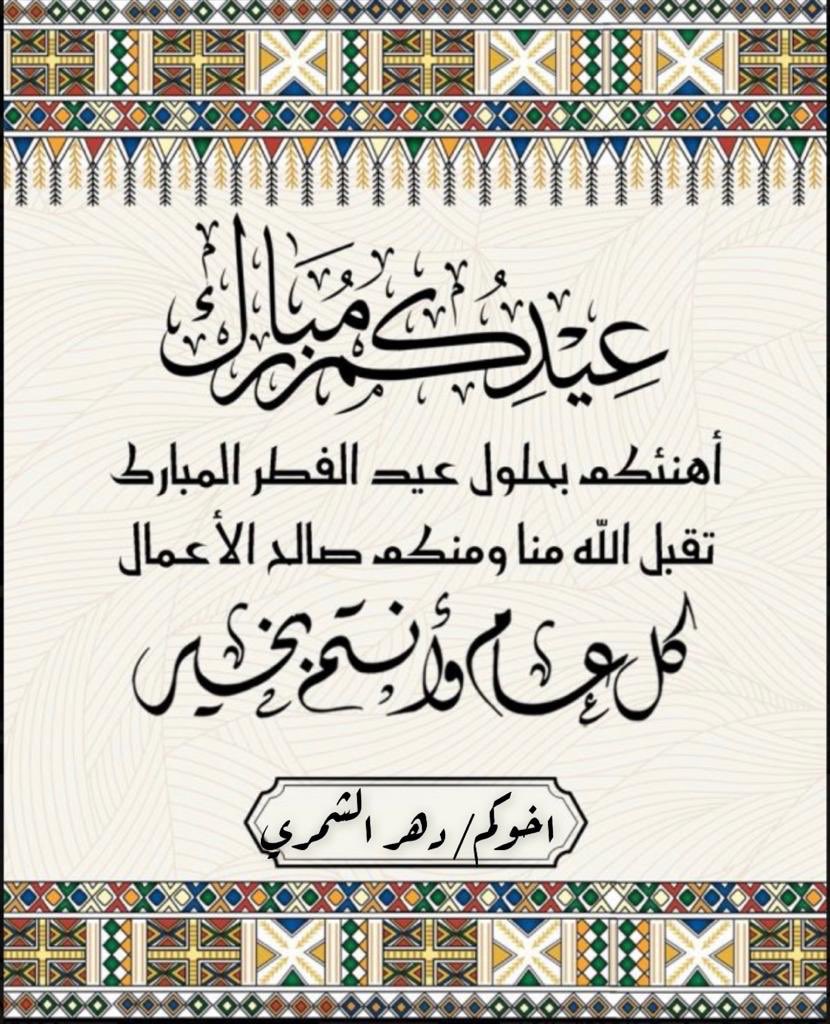 عِيْدِكُم مُبَارك
أهنئكم بحلول عيد الفطر المبارك
تقبل الله منا ومنكم صالح الأعمال
كل عام وأنتم بخير
اخوكم/ دهر الشمري